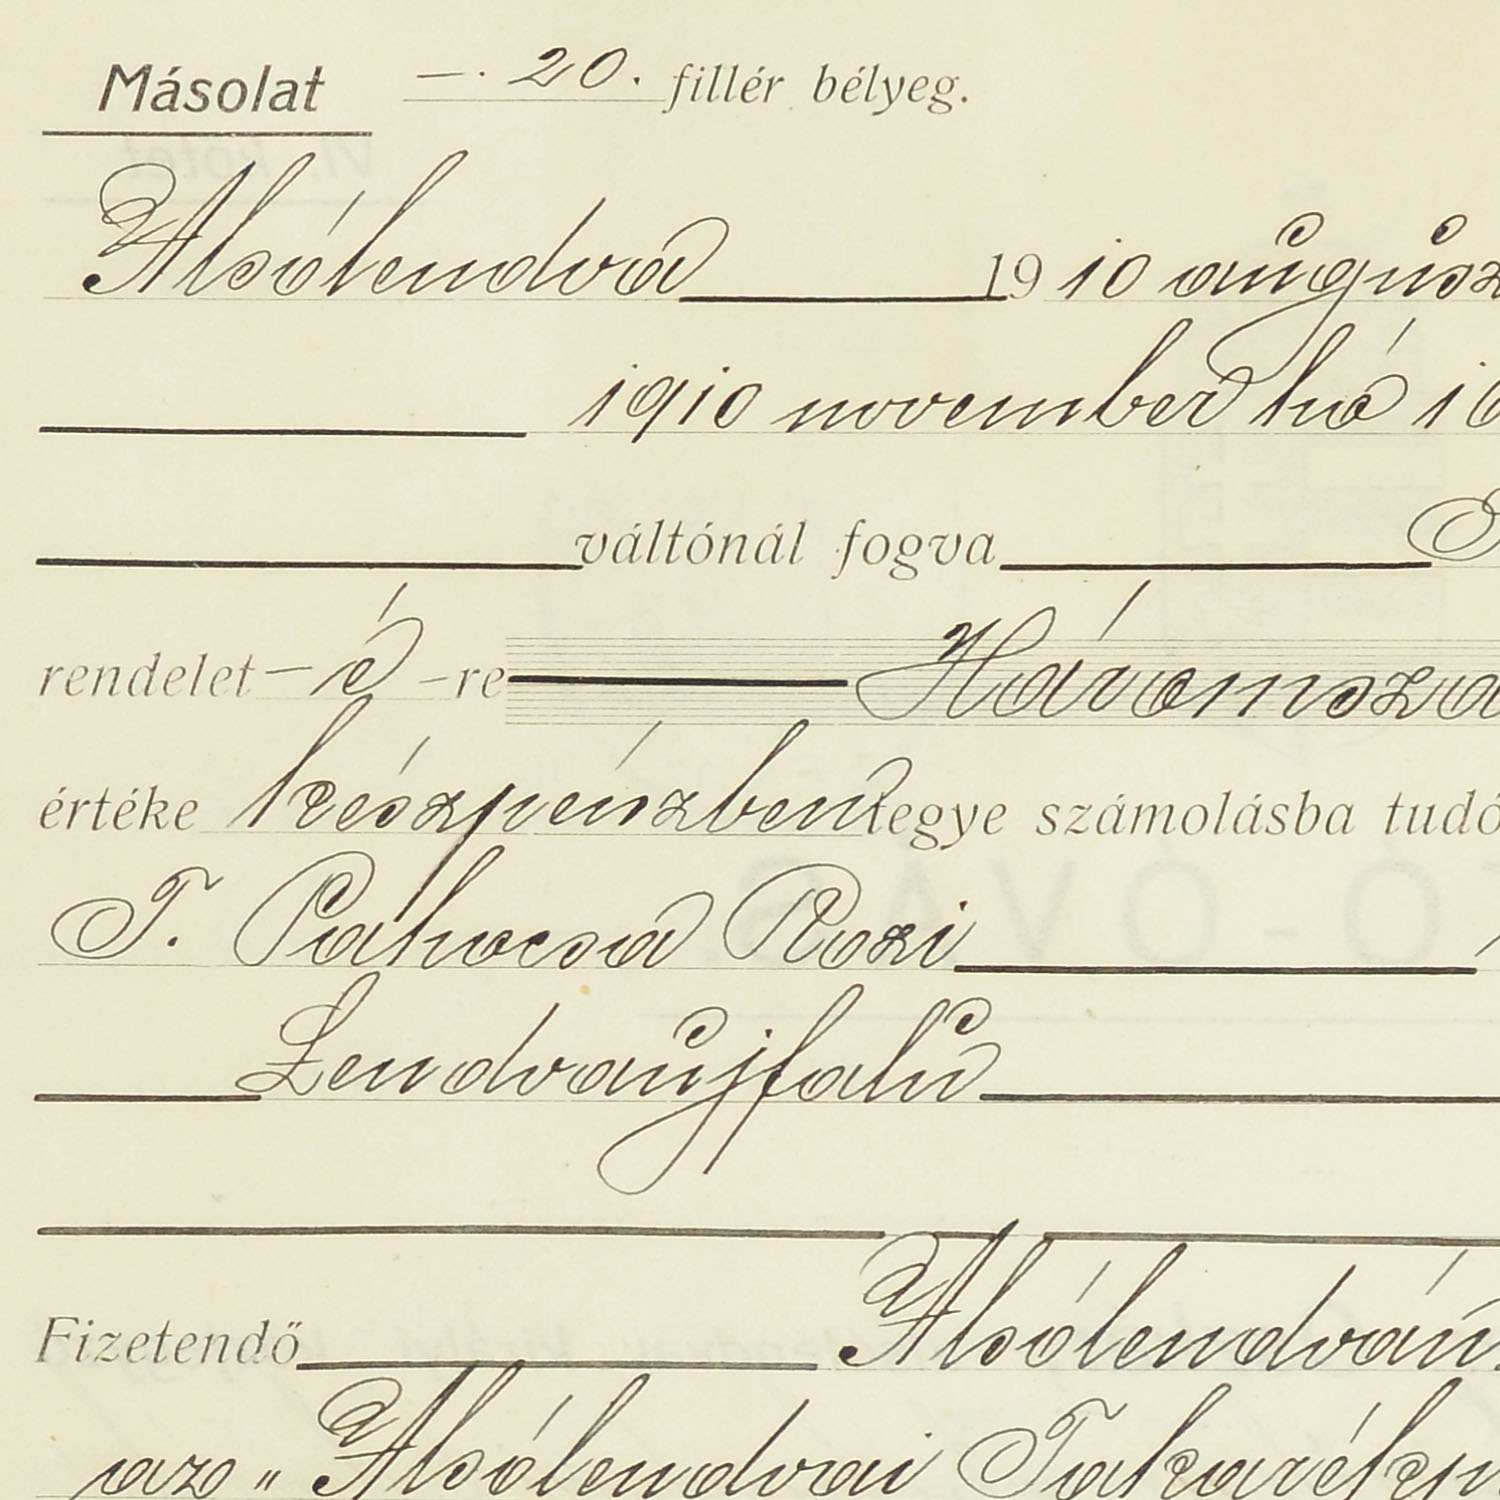 Másolat —. 20. fillér bélyeg.
Alsólendva 1910 augusz
1910 november hó 1
váltónál fogva
rendelet–é–re Háromsza
értéke készpénzben tegye számolásba tudó
T. Pahocsa Rozi
Lendvaujfalu
Fizetendő Alsólendván.
az „Alsólendvai Takarékp